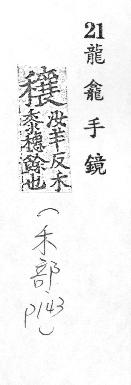 21 龍龕手鏡
穰 汝羊反禾
黍穗餘也
(禾部
P143)